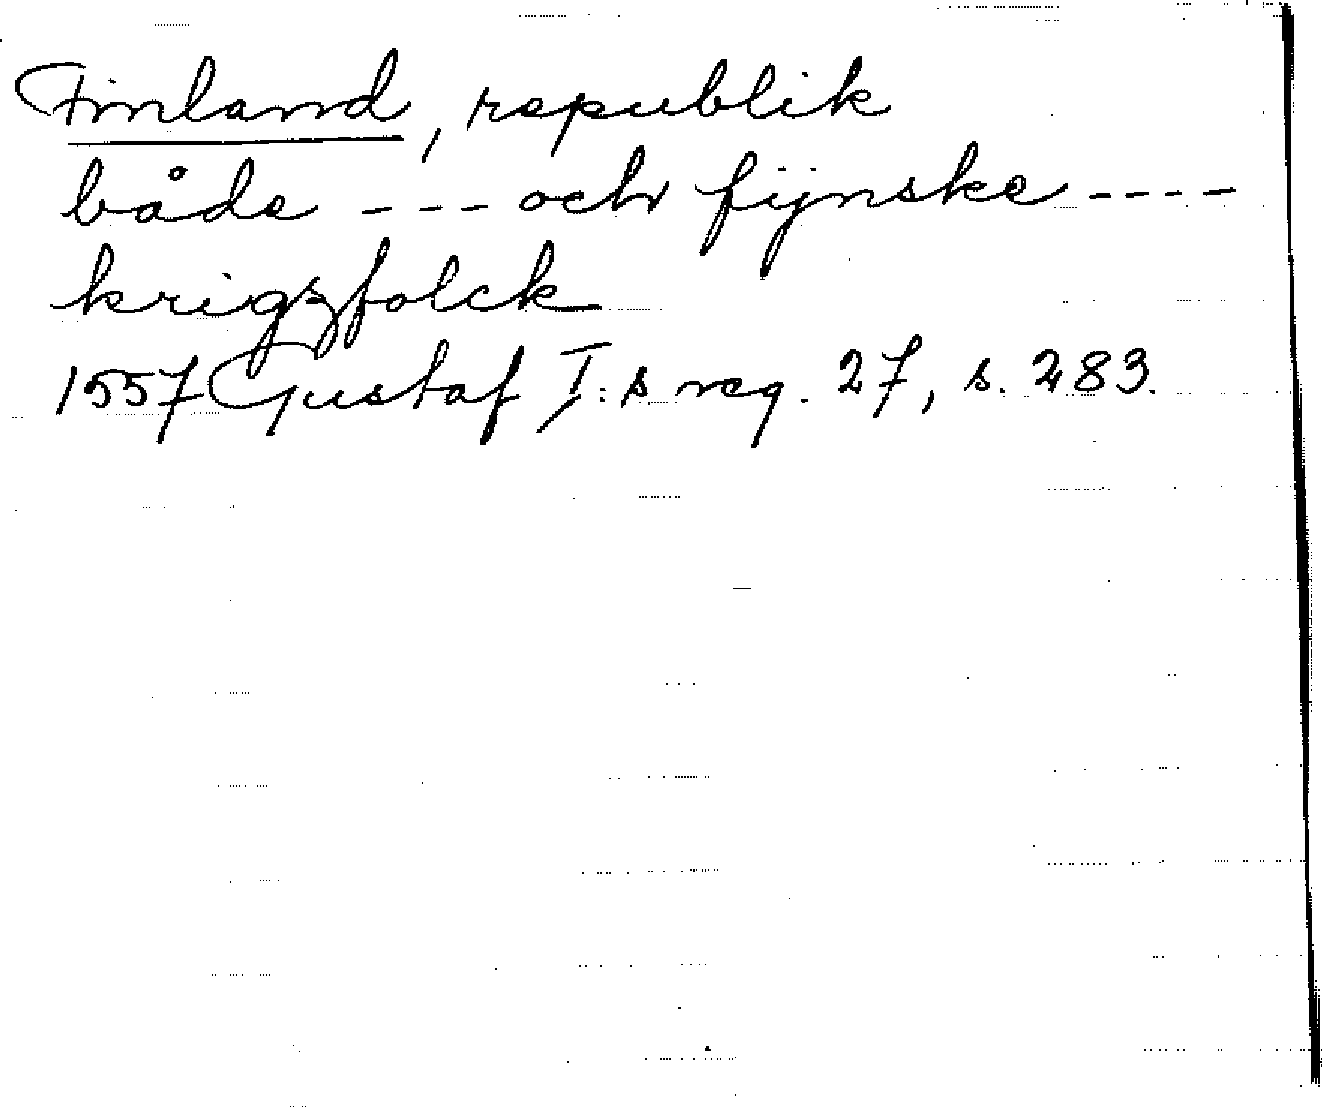 Finland, republik
både --- och fijnske ----
krigzfolck
1557 Gustaf I:s reg. 27, s. 283.